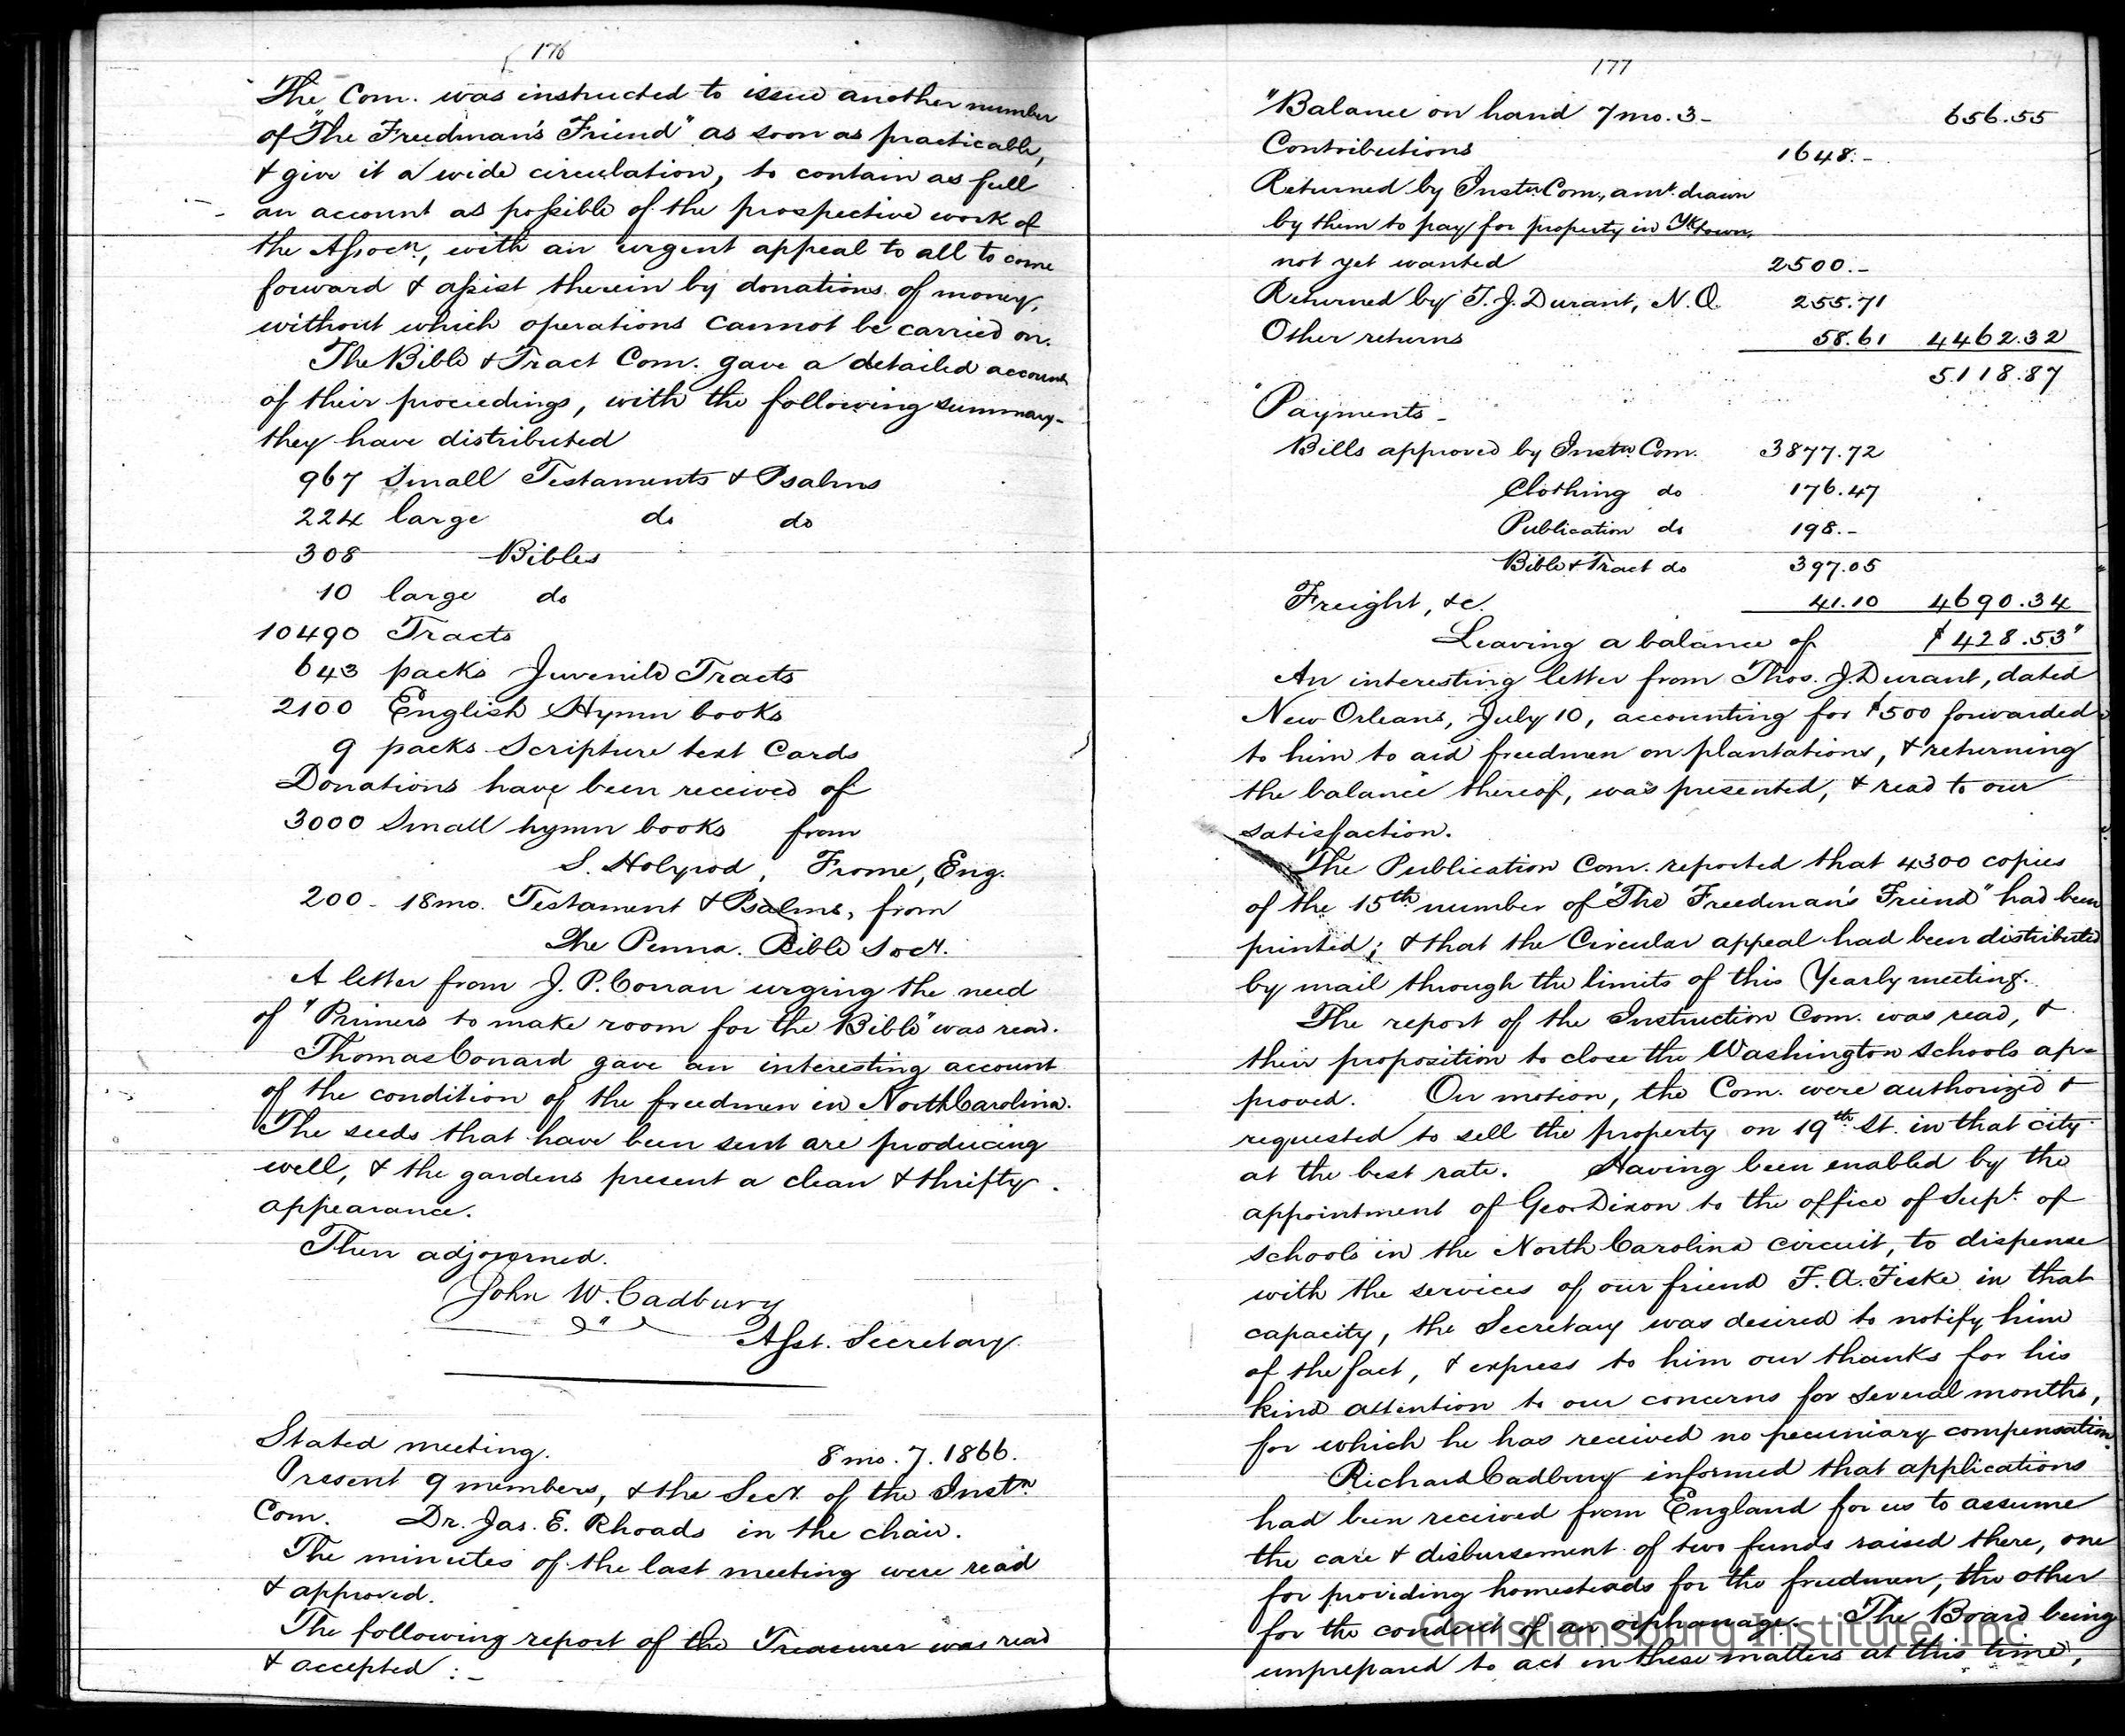 176
The Com. was instructed to issue another number
of "The Freedman's Friend" as soon as practicable,
& give it a wide circulation, to contain as full
an account as possible of the prospective work of
the Assocn, with an urgent appeal to all to come
forward & assist therein by donations of money,
without which operations cannot be carried on.
The Bible & Tract Com. gave a detailed account
of their proceedings, with the following summary-
they have distributed
967 Small Testaments & Psalms
224 large do do
308 Bibles
10 large do
10490 Tracts
643 packs Juvenile Tracts
2100 English Hymn books
9 packs Scripture text Cards
Donations have been received of
3000 Small hymn books from
S. Holyrod, Frome, Eng.
200 - 18mo. Testament & Psalms, from
The Penna. Bible Socy.
A letter from J. P. Conan urging the need
of "Primers to make room for the Bible" was read.
Thomas Conard gave an interesting account
of the condition of the freedmen in North Carolina.
The seeds that have been sent are producing
well, & the gardens present a clean & thrifty
appearance.
Then adjourned.
John W. Cadbury
Asst. Secretary
Stated meeting. 8 mo. 7. 1866.
Present 9 members, & the Secy. of the Instn
Com. Dr. Jas. E. Rhoads in the chair.
The minutes of the last meeting were read
& approved.
The following report of the Treasurer was read
& accepted :-
177
"Balance on hand 7 mo. 3- 656.55
Contributions 1648.-
Returned by Instn Com., amt. drawn
by them to pay for property in Yktown,
not yet wanted 2500.-
Returned by T. J. Durant, N.O. 255.71
Other returns 58.61 4462.32
5118.87
Payments -
Bills approved by Instn. Com. 3877.72
Clothing do 176.47
Publication do 198.-
Bible & Tract do 397.05
Freight, &c. 41.10 4690.34
Leaving a balance of $428.53"
An interesting letter from Thos. J. Durant, dated
New Orleans, July 10, accounting for $500 forwarded
to him to aid freedmen on plantations, & returning
the balance thereof, was presented, & read to our
satisfaction.
The Publication Com. reported that 4300 copies
of the 15th number of "The Freedman's Friend" had been
printed; & that the Circular appeal had been distributed
by mail through the limits of this Yearly meeting.
The report of the Instruction Com. was read, &
their proposition to close the Washington schools ap-
proved. On motion, the Com. were authorized &
requested to sell the property on 19th St. in that city
at the best rate. Having been enabled by the
appointment of Geo. Dixon to the office of Supt. of
schools in the North Carolina circuit, to dispense
with the services of our friend F. A. Fiske in that
capacity, the Secretary was desired to notify him
of the fact, & express to him our thanks for his
kind attention to our concerns for several months,
for which he has received no pecuniary compensation.
Richard Cadbury informed that applications
had been received from England for us to assume
the care & disbursement of two funds raised there, one
for providing homesteads for the freedmen, the other
for the conduct of an orphanage. The Board being
unprepared to act in these matters at this time,
Christiansburg Institute, Inc.